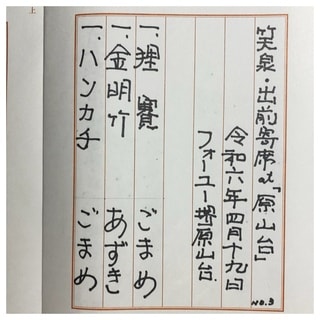 上
笑泉・出前寄席at「原山台」
令和六年四月十九日
フォーユー堺原山台.
一、狸賽 ごまめ
一、金明竹 あずき
一、ハンカチ ごまめ
NO.3